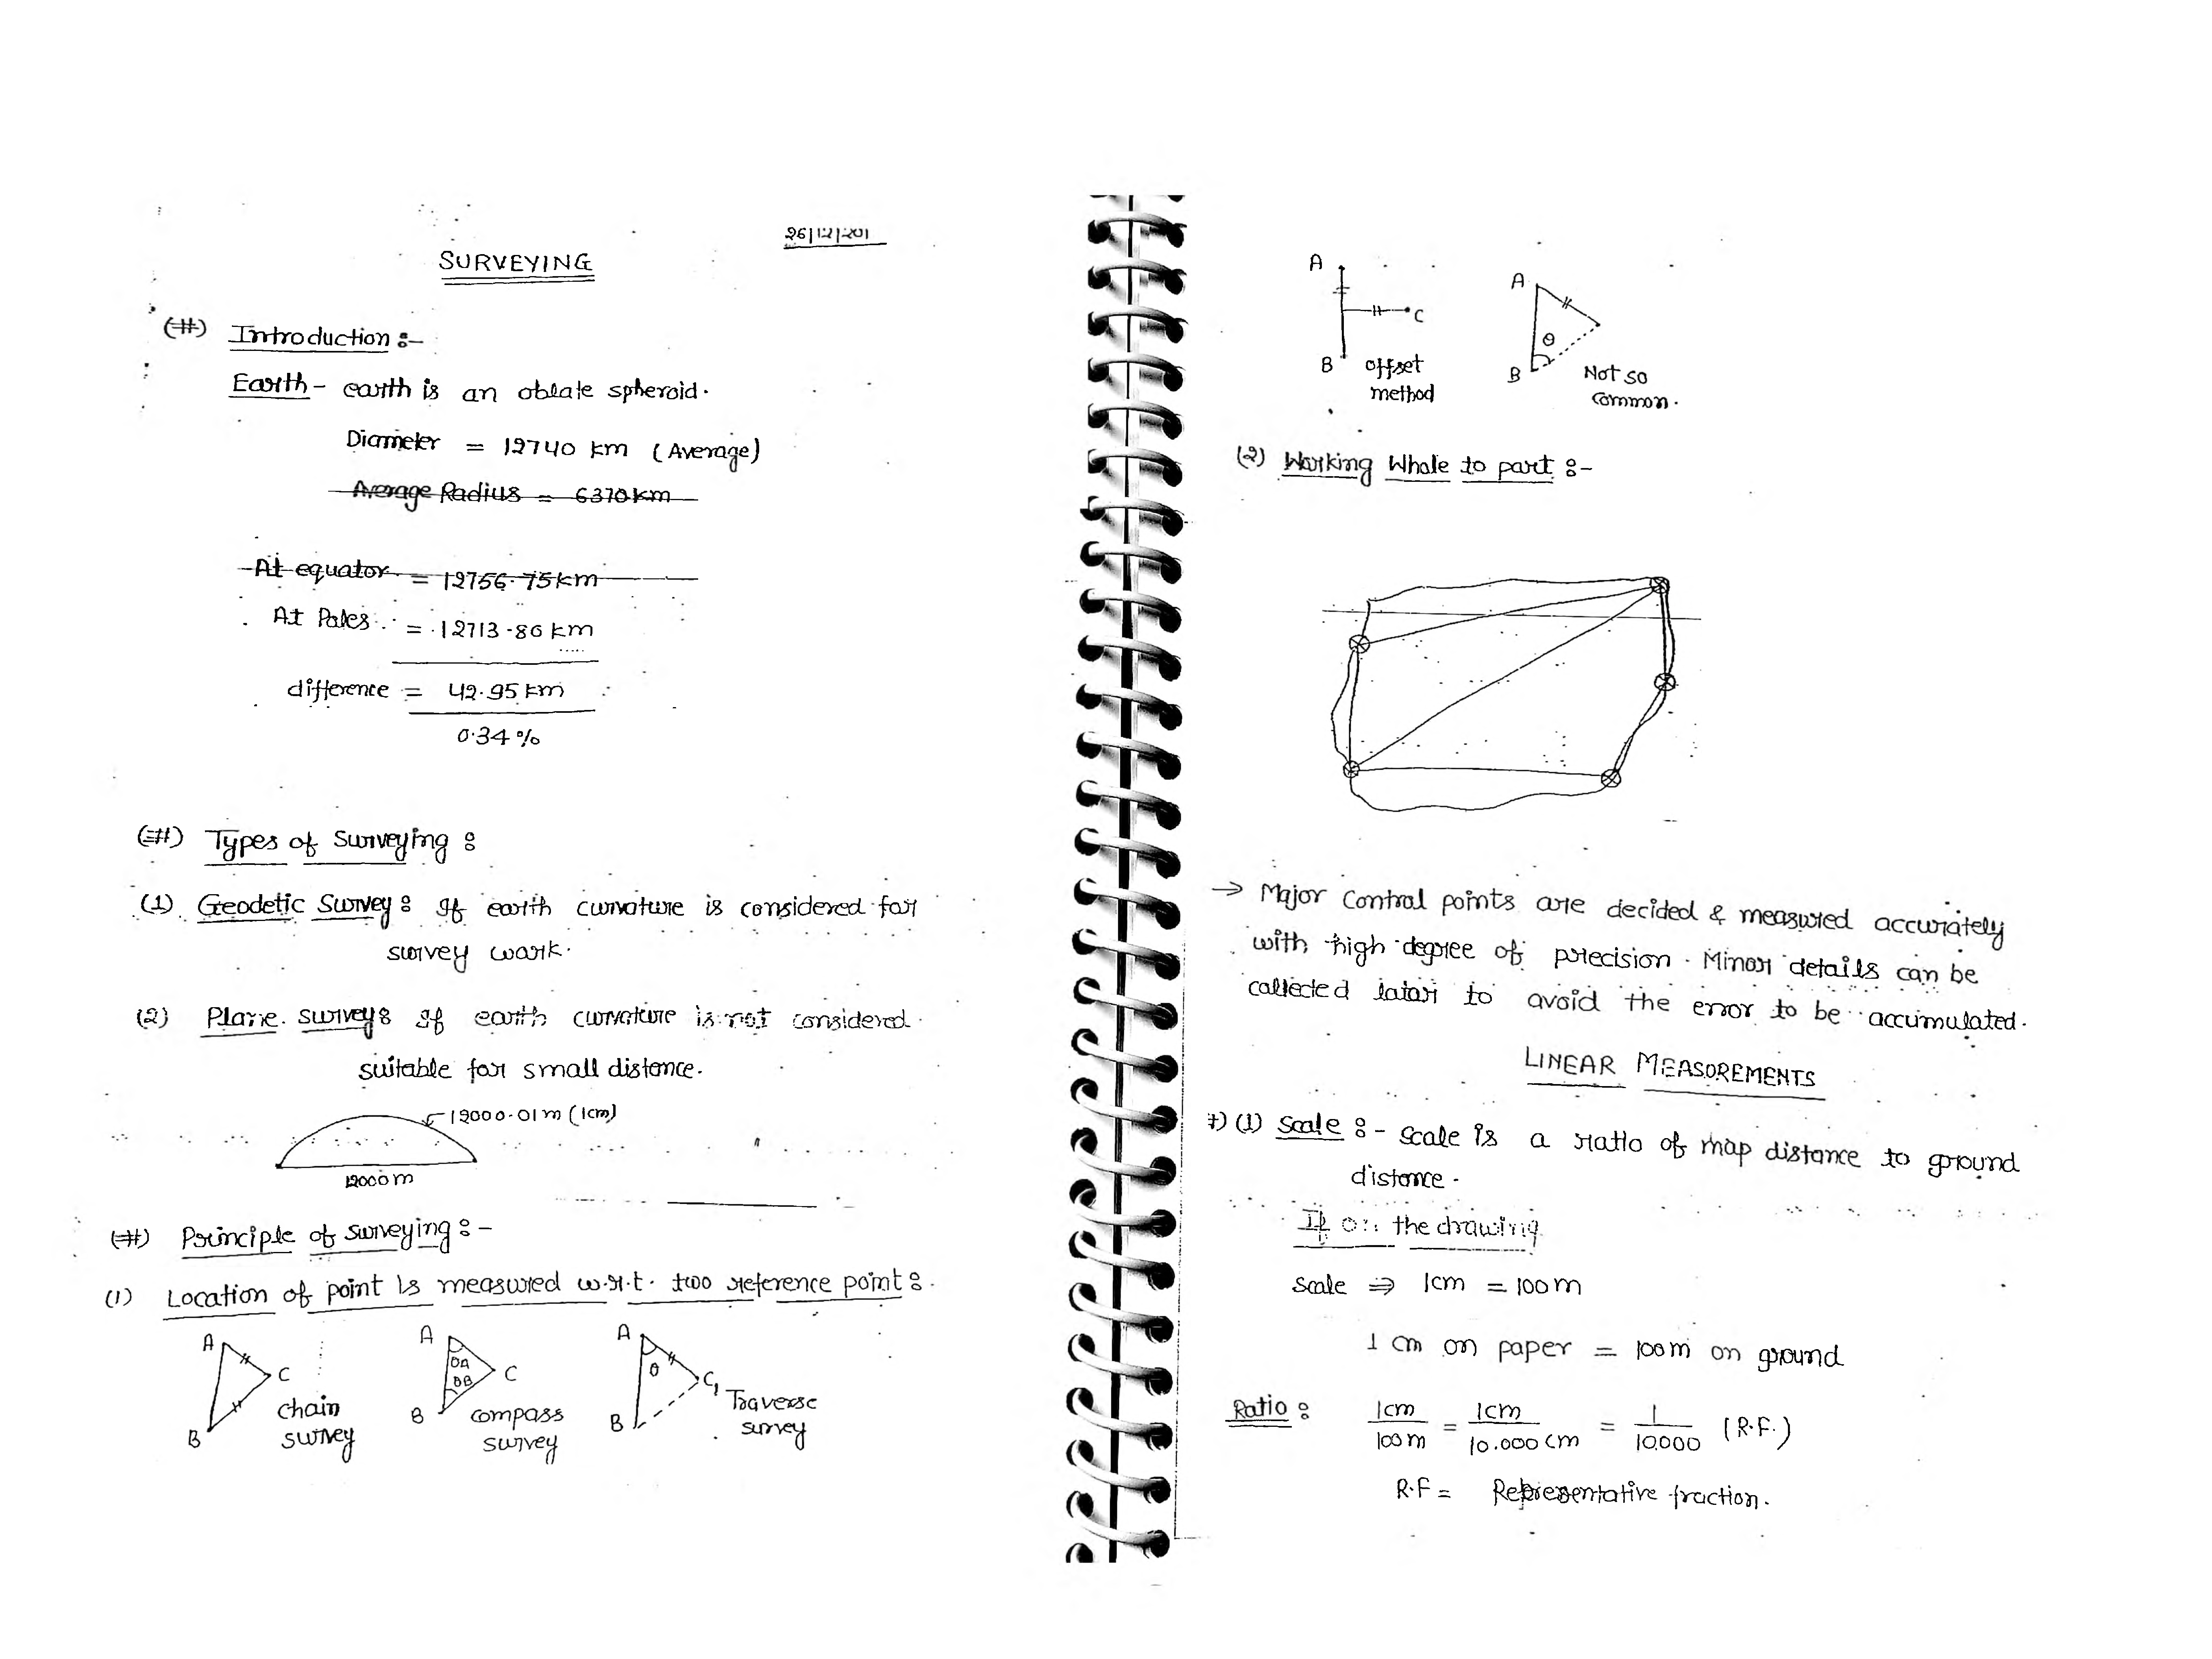 26/12/201
SURVEYING
(#) Introduction :-
Earth - earth is an oblate spheroid.
Diameter = 12740 km (Average)
Average Radius = 6370 km
At equator = 12756.75 km
At Poles = 12713.80 km
difference = 42.95 km
0.34 %
(#) Types of Surveying :
(1) Geodetic Survey : If earth curvature is considered for
survey work.
(2) Plane survey : If earth curvature is not considered.
suitable for small distance.
12000.01 m (1cm)
12000 m
(#) Principle of surveying :-
(1) Location of point is measured w.r.t. two reference point :.
A
B
C
chain
survey
A
θA
θB
B
C
compass
survey
A
θ
B
C,
Traverse
survey
A
C
B
offset
method
A
θ
B
Not so
common.
(2) Working Whole to part :-
→ Major control points are decided & measured accurately
with high degree of precision. Minor details can be
collected later to avoid the error to be accumulated.
LINEAR MEASUREMENTS
#) (1) Scale :- Scale is a ratio of map distance to ground
distance.
If on the drawing
Scale ⇒ 1cm = 100 m
1 cm on paper = 100m on ground
Ratio : 1cm/100m = 1cm/10.000 cm = 1/10000 (R.F.)
R.F = Representative fraction.